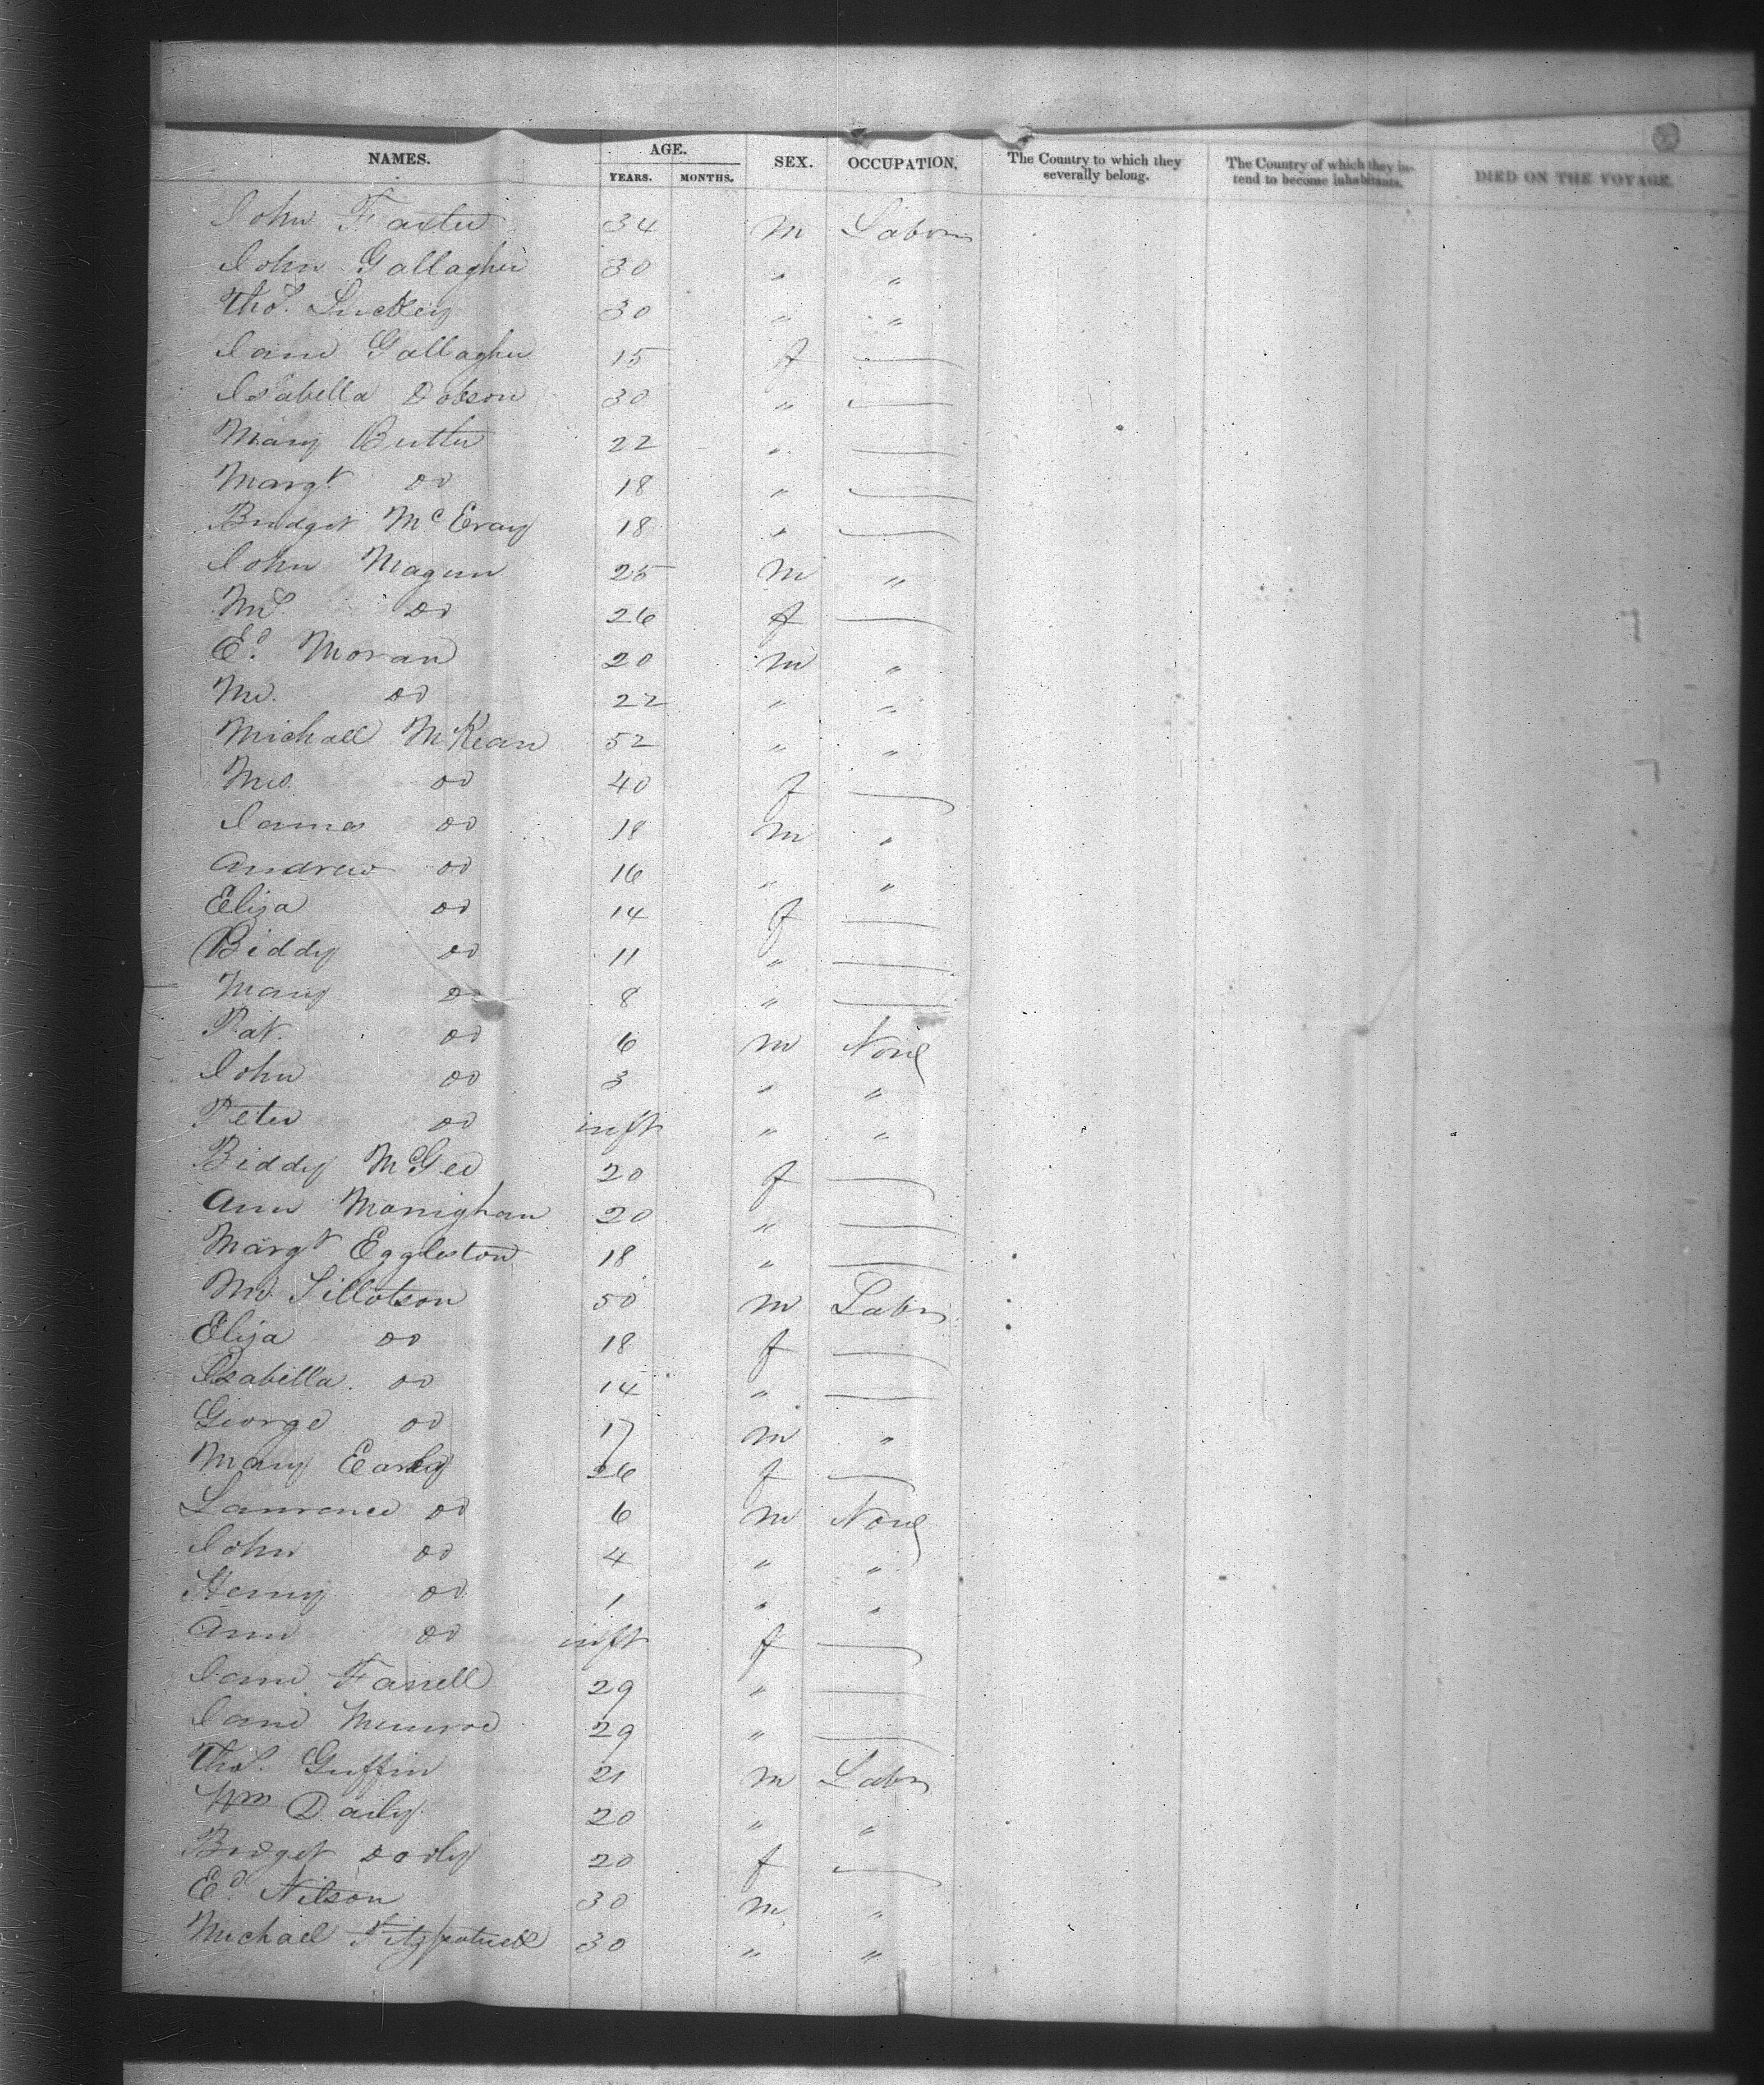 NAMES. AGE. SEX. OCCUPATION. The Country to which they severally belong. The Country of which they intend to become inhabitants. DIED ON THE VOYAGE.
YEARS. MONTHS.
John 34 m Labor
John Gallagher 30 " "
Thos. Luckey 30 " "
Jane Gallagher 15 f —
Isabella Dobson 30 " —
Mary Butler 22 " —
Margt. do 18 " —
Bridget McEvay 18 " —
John Magun 25 m "
Mrs. do 26 f —
Ed. Moran 20 m "
do 22 " "
Michall McKean 52 " "
Mrs. do 40 f —
James do 18 m "
Andrew do 16 " "
Eliza do 14 f —
Biddy do 11 " —
Mary do 8 " —
Pat. do 6 m None
John do 3 " "
Peter do inft " "
Biddy McGee 20 f —
Ann Monighan 20 " —
Margt Eggleston 18 " —
Tillotson 50 m Labr
Eliza do 18 f —
Isabella do 14 " —
George do 17 m "
Mary Early 26 f —
Lawrence do 6 m None
John do 4 " "
Henry do 1 " "
Ann do inft f —
Jane Farrell 29 " —
Jane Munroe 29 " —
Thos. Griffin 21 m Labr
Wm Daily 20 " "
Bridget 20 f —
Ed. Nilson 30 m "
Michael Fitzpatrick 30 " "